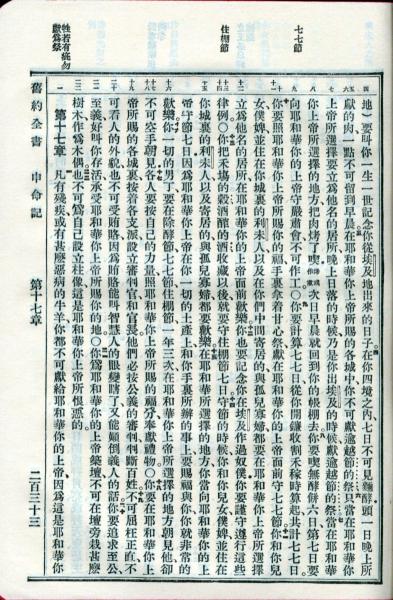 七七節
住棚節
牲若有疵勿獻爲祭
地)要叫你一生一世記念你從埃及地出來的日子在你四境之內七日不可見麵酵頭一日晚上所
獻的肉一點不可留到早晨在耶和華你上帝所賜的各城中你不可獻逾越節的祭只當在耶和華
上帝所選擇要立爲他名的居所晚上日落的時候乃是你出埃及的時候獻逾越節的祭當在耶和華
你上帝所選擇的地方把肉烤了喫次日早晨就回到你的帳棚去你要喫無酵餅六日第七日要
向耶和華你的上帝守嚴肅會不可作工○你要計算七七日從你開鐮收割禾稼時算起共計七七日
你要照耶和華你上帝所賜你的福手裏拿着甘心祭獻在耶和華你的上帝面前守七七節你和你兒
女僕婢並住在你城裏的利未人以及在你們中間寄居的與孤兒寡婦都要在耶和華你上帝所選擇
立爲他名的居所在耶和華你的上帝面前歡樂你也要記念你在埃及作過奴僕你要謹守遵行這些
律例○你把禾場的穀酒醡的酒收藏以後就要守住棚節七日守節的時候你和你兒女僕婢並住在
你城裏的利未人以及寄居的與孤兒寡婦都要歡樂在耶和華所選擇的地方你當向耶和華你的上
帝守節七日因爲耶和華你上帝在你一切的土產上和你手裏所辦的事上要賜福與你你就非常的
歡樂你一切的男丁要在除酵節七七節住棚節一年三次在耶和華你上帝所選擇的地方朝見他卻
不可空手朝見各人要按自己的力量照耶和華你上帝所賜的福分奉獻禮物○你要在耶和華你上
帝所賜的各城裏按着各支派設立審判官和官長他們必按公義的審判判斷百姓不可屈枉正直不
可看人的外貌也不可受賄賂因爲賄賂能叫智慧人的眼變瞎了又能顚倒義人的話你要追求至公
至義好叫你存活承受耶和華你上帝所賜你的地○你爲耶和華你的上帝築壇不可在壇旁栽甚麼
樹木作爲木偶也不可爲自己設立柱像這是耶和華你上帝所恨惡的
第十七章 凡有殘疾或有甚麼惡病的牛羊你都不可獻給耶和華你的上帝因爲這是耶和華你
舊約全書 申命記 第十七章 二百三十三